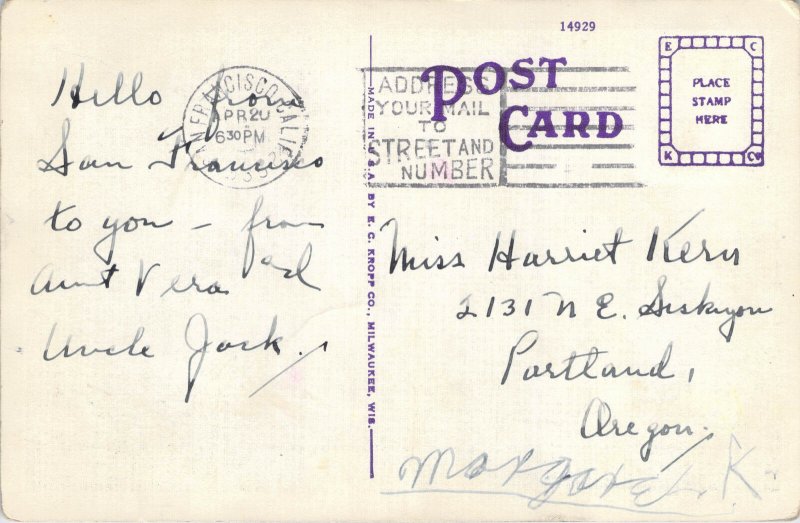 14929
POST
CARD
E C
PLACE
STAMP
HERE
K Co
SAN FRANCISCO, CALIF.
APR 20
630 PM
ADDRESS
YOUR MAIL
TO
STREET AND
NUMBER
Hello from
San Francisco
to you – from
Aunt Vera and
Uncle Jack.
MADE IN U.S.A. BY E. C. KROPP CO., MILWAUKEE, WIS.
Miss Harriet Kern
2131 N E. Siskiyou
Portland,
Oregon.
Margaret K